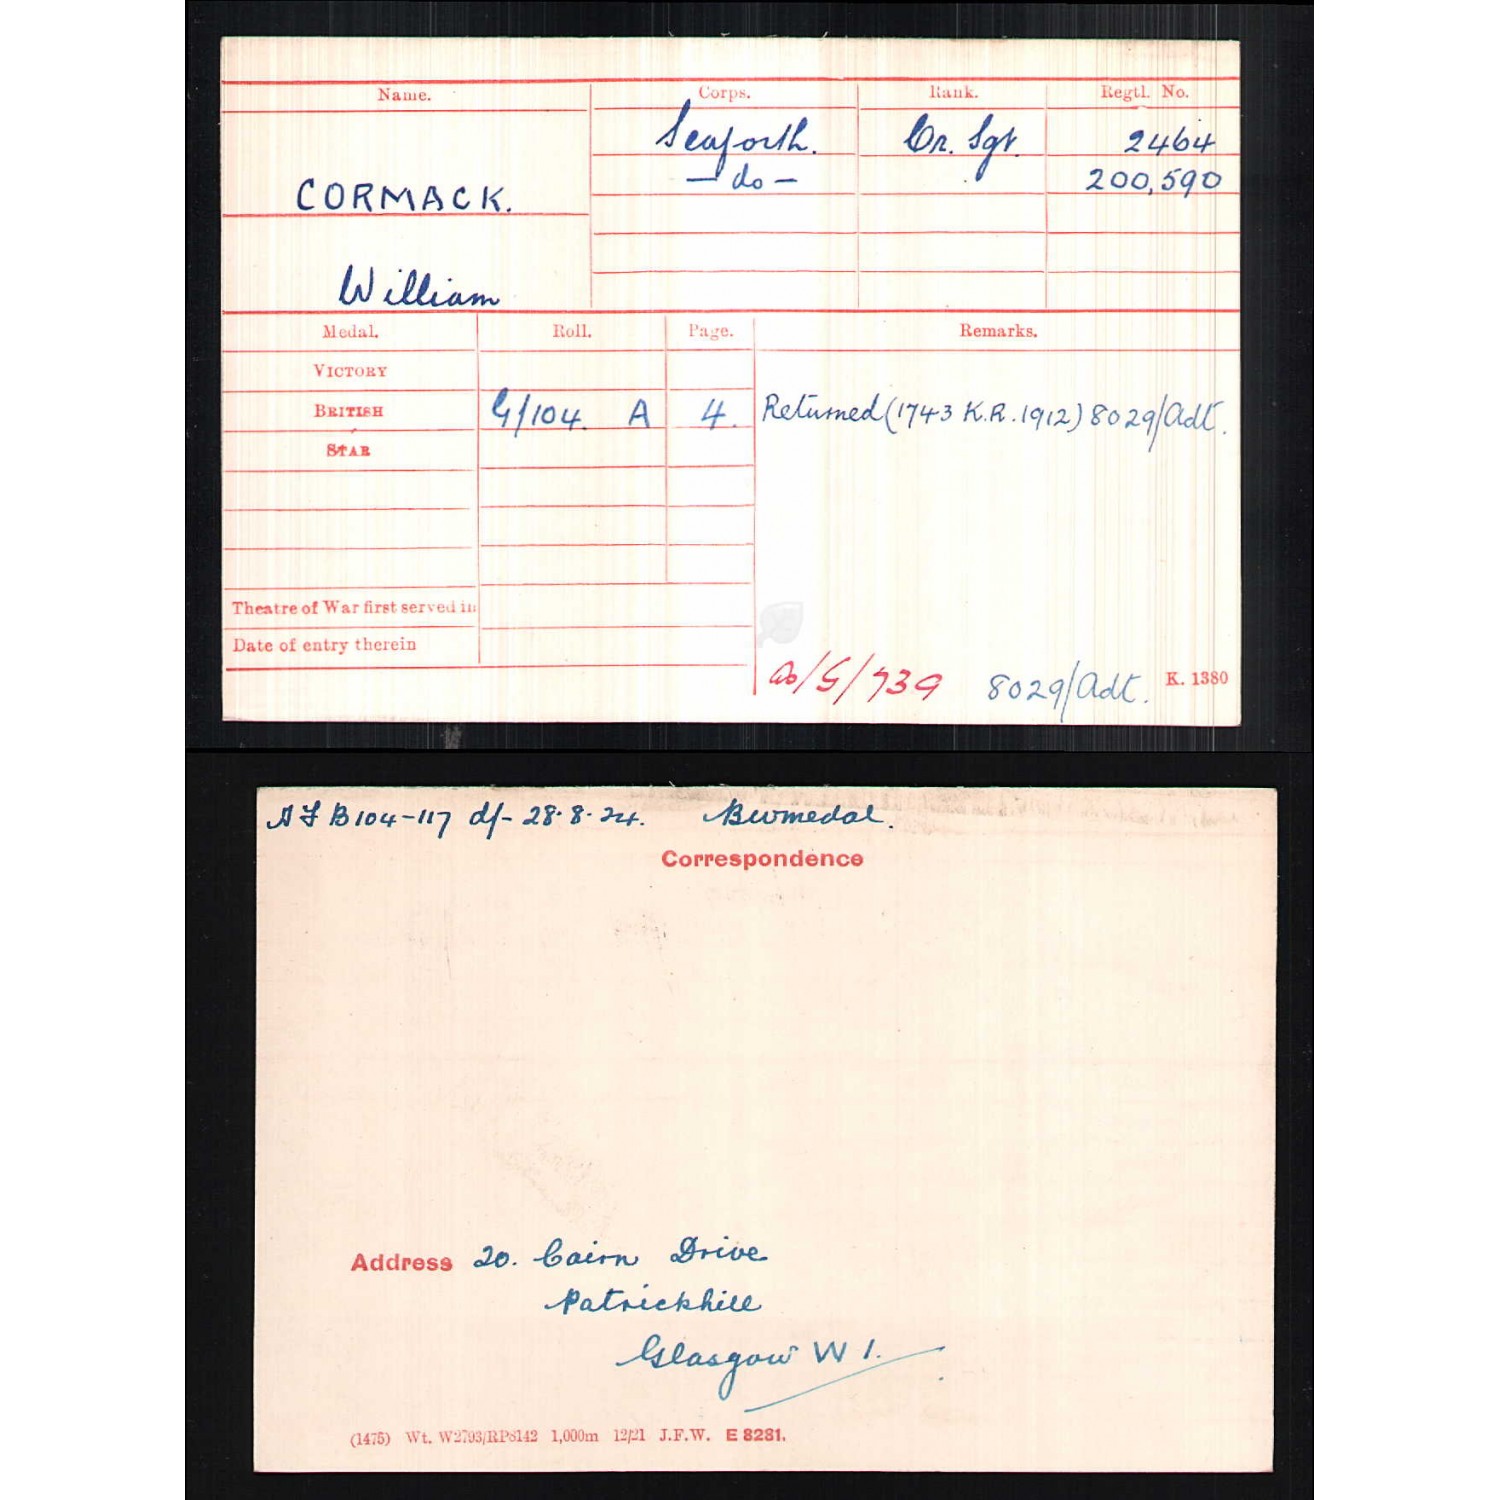 Name. Corps. Rank. Regtl. No.
Seaforth. Cr. Sgt. 2464
CORMACK. — do — 200,590
William
Medal. Roll. Page. Remarks.
VICTORY
BRITISH G/104 A 4. Returned (1743 K.R. 1912) 8029/Adt.
STAR
Theatre of War first served in
Date of entry therein
/G/739 8029/Adt. K. 1380
A F B104-117 df- 28.8.24. Bwmedal.
Correspondence
Address 20. Cairn Drive
Patrickhill
Glasgow W 1.
(1475) Wt. W2793/RP8142 1,000m 12/21 J.F.W. E 8281.